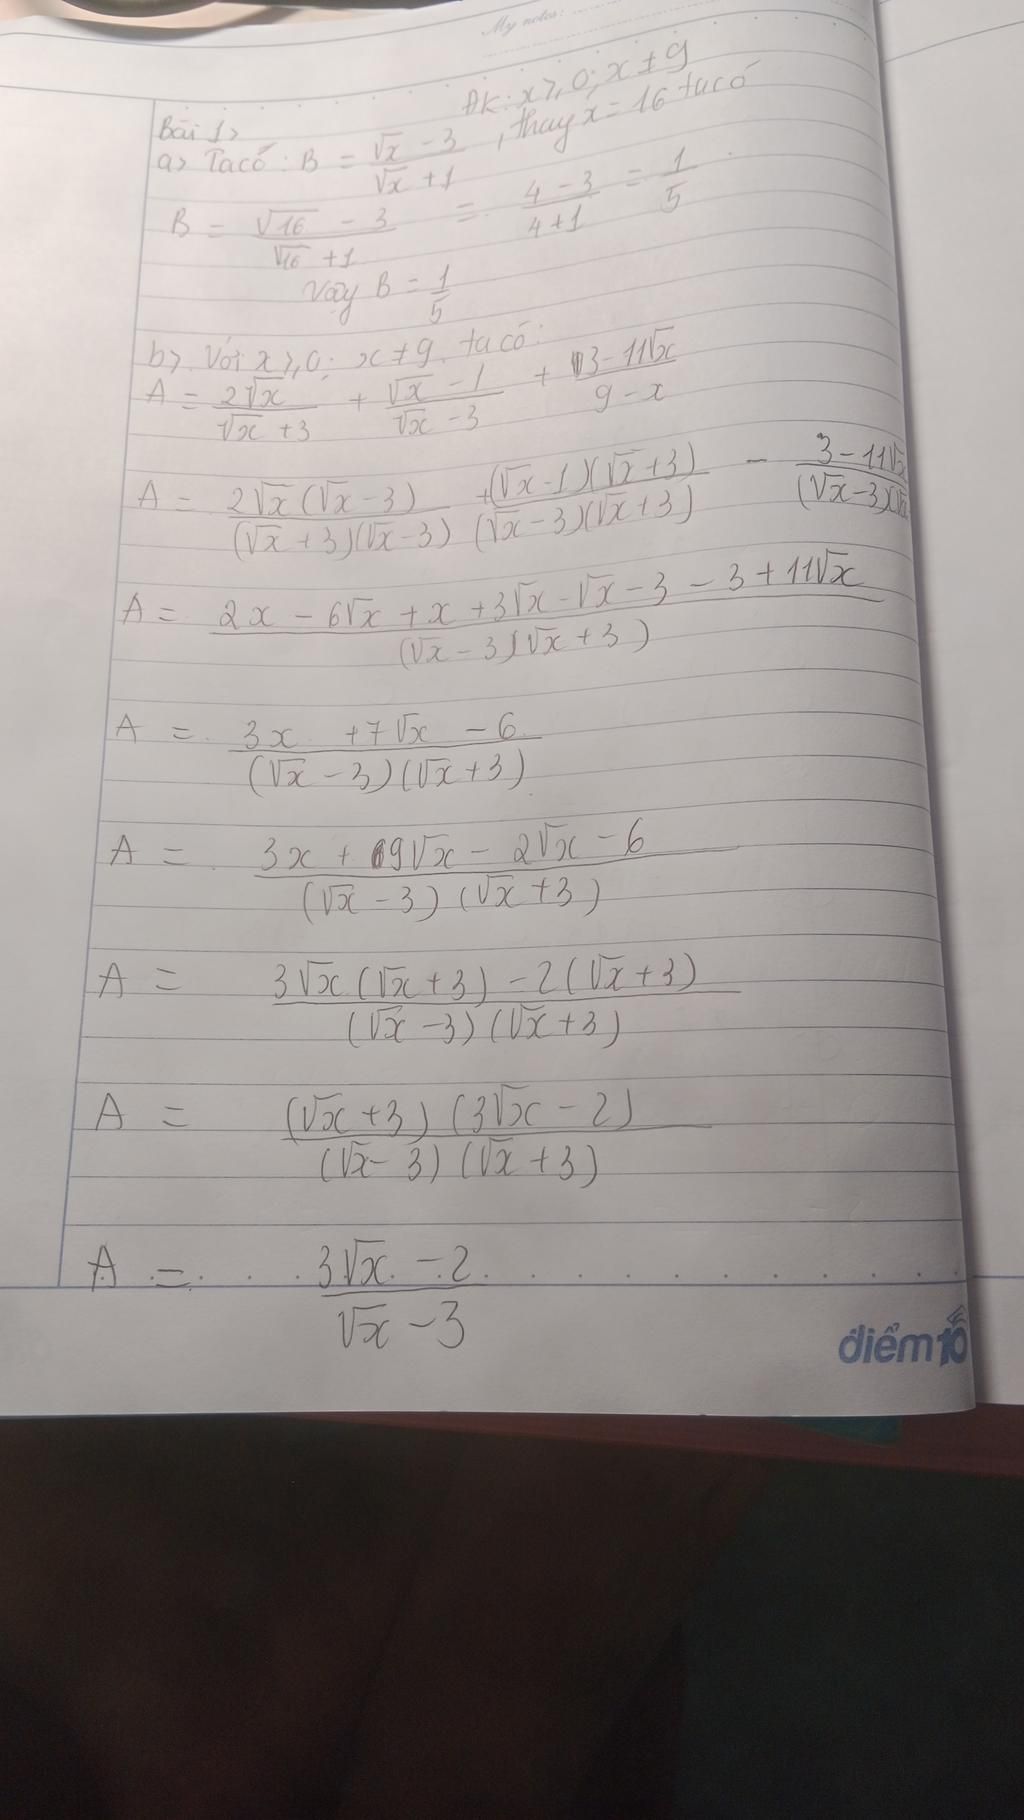 My notes:
ĐK: x ⩾ 0; x ≠ 9
Bài 1>
a> Ta có: B = (√x - 3)/(√x + 1), thay x = 16 ta có
B = (√16 - 3)/(√16 + 1) = (4 - 3)/(4 + 1) = 1/5
Vậy B = 1/5
b> Với x ⩾ 0; x ≠ 9 ta có:
A = 2√x/(√x + 3) + (√x - 1)/(√x - 3) + (3 - 11√x)/(9 - x)
A = 2√x(√x - 3)/(√x + 3)(√x - 3) + (√x - 1)(√x + 3)/(√x - 3)(√x + 3) - (3 - 11√x)/(√x - 3)(√x
A = (2x - 6√x + x + 3√x - √x - 3 - 3 + 11√x)/(√x - 3)(√x + 3)
A = (3x + 7√x - 6)/(√x - 3)(√x + 3)
A = (3x + 9√x - 2√x - 6)/(√x - 3)(√x + 3)
A = (3√x(√x + 3) - 2(√x + 3))/(√x - 3)(√x + 3)
A = (√x + 3)(3√x - 2)/(√x - 3)(√x + 3)
A = (3√x - 2)/(√x - 3)
điểm 10